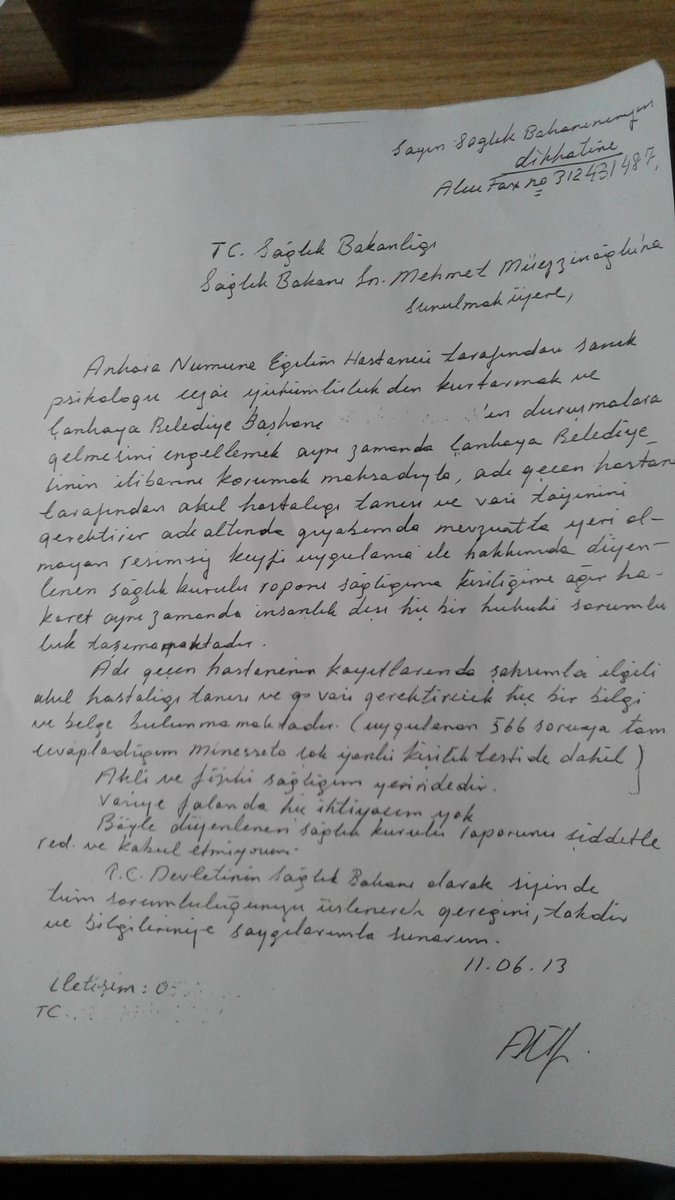 Sayın Sağlık Bakanınınzın
dikkatine
Alıcı Fax no 312431487,
TC. Sağlık Bakanlığı
Sağlık Bakanı Sn. Mehmet Müezzinoğlu'na
Sunulmak üzere,
Ankara Numune Eğitim Hastanesi tarafından sanık
psikoloğu cezai yükümlülükden kurtarmak ve
Çankaya Belediye Başkanı 'ın duruşmalara
gelmesini engellemek aynı zamanda Çankaya Belediye_
sinin itibarını korumak maksadıyla, adı geçen hastane
tarafından akıl hastalığı tanısı ve vasi tayinini
gerektirir adı altında gıyabımda mevzuatta yeri ol-
mayan resimsiz keyfi uygulama ile hakkımda düzen-
lenen sağlık kurulu raporu sağlığıma kişiliğime ağır ha-
karet aynı zamanda insanlık dışı hiç bir hukuki sorumlu
luk taşımamaktadır.
Adı geçen hastanenin kayıtlarında şahsımla ilgili
akıl hastalığı tanısı ve vasi gerektirecek hiç bir bilgi
ve belge bulunmamaktadır. (uygulanan 566 soruya tam
cevapladığım Minesseto çok yönlü kişilik testi de dahil)
Akli ve fiziki sağlığım yerindedir.
Vasiye falanda hiç ihtiyacım yok
Böyle düzenlenen sağlık kurulu raporunu şiddetle
red. ve kabul etmiyorum.
T.C. Devletinin Sağlık Bakanı olarak sizinde
tüm sorumluluğunuzu üstlenerek gereğini, takdir
ve bilgilerinize saygılarımla sunarım.
11.06.13
iletişim: 0
TC